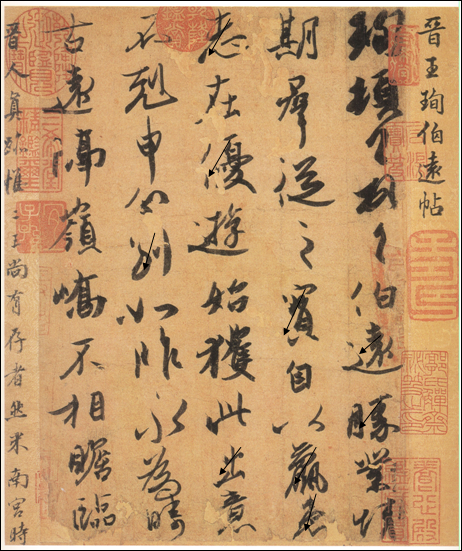 晉王珣伯遠帖
珣頓首頓首伯遠勝業情
期群從之寶自以羸患
志在優游始獲此出意
不剋申分別如昨永為疇
古遠隔嶺嶠不相瞻臨
晉人真跡惟二王尚有存者然米南宮時